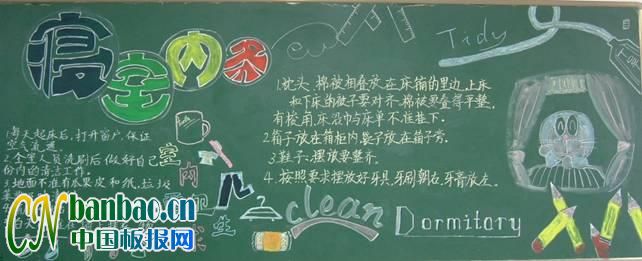 寝室内务
Tidy
1.每天起床后,打开窗户,保证
空气流通。
2.全室人员洗刷后做好自己
份内的清洁工作。
3.地面不准有瓜果皮和纸,垃圾
室内
卫生
1.枕头、棉被相叠放在床铺的里边,上床
和下床的被子要对齐,棉被要叠得平整,
有校用床沿巾与床单不准垂下。
2.箱子放在箱柜内,
3.鞋子:摆放要整齐。
4.按照要求摆放好牙具,牙刷朝右,牙膏放左。
clean
Dormitary
CN banbao.cn
中国板报网